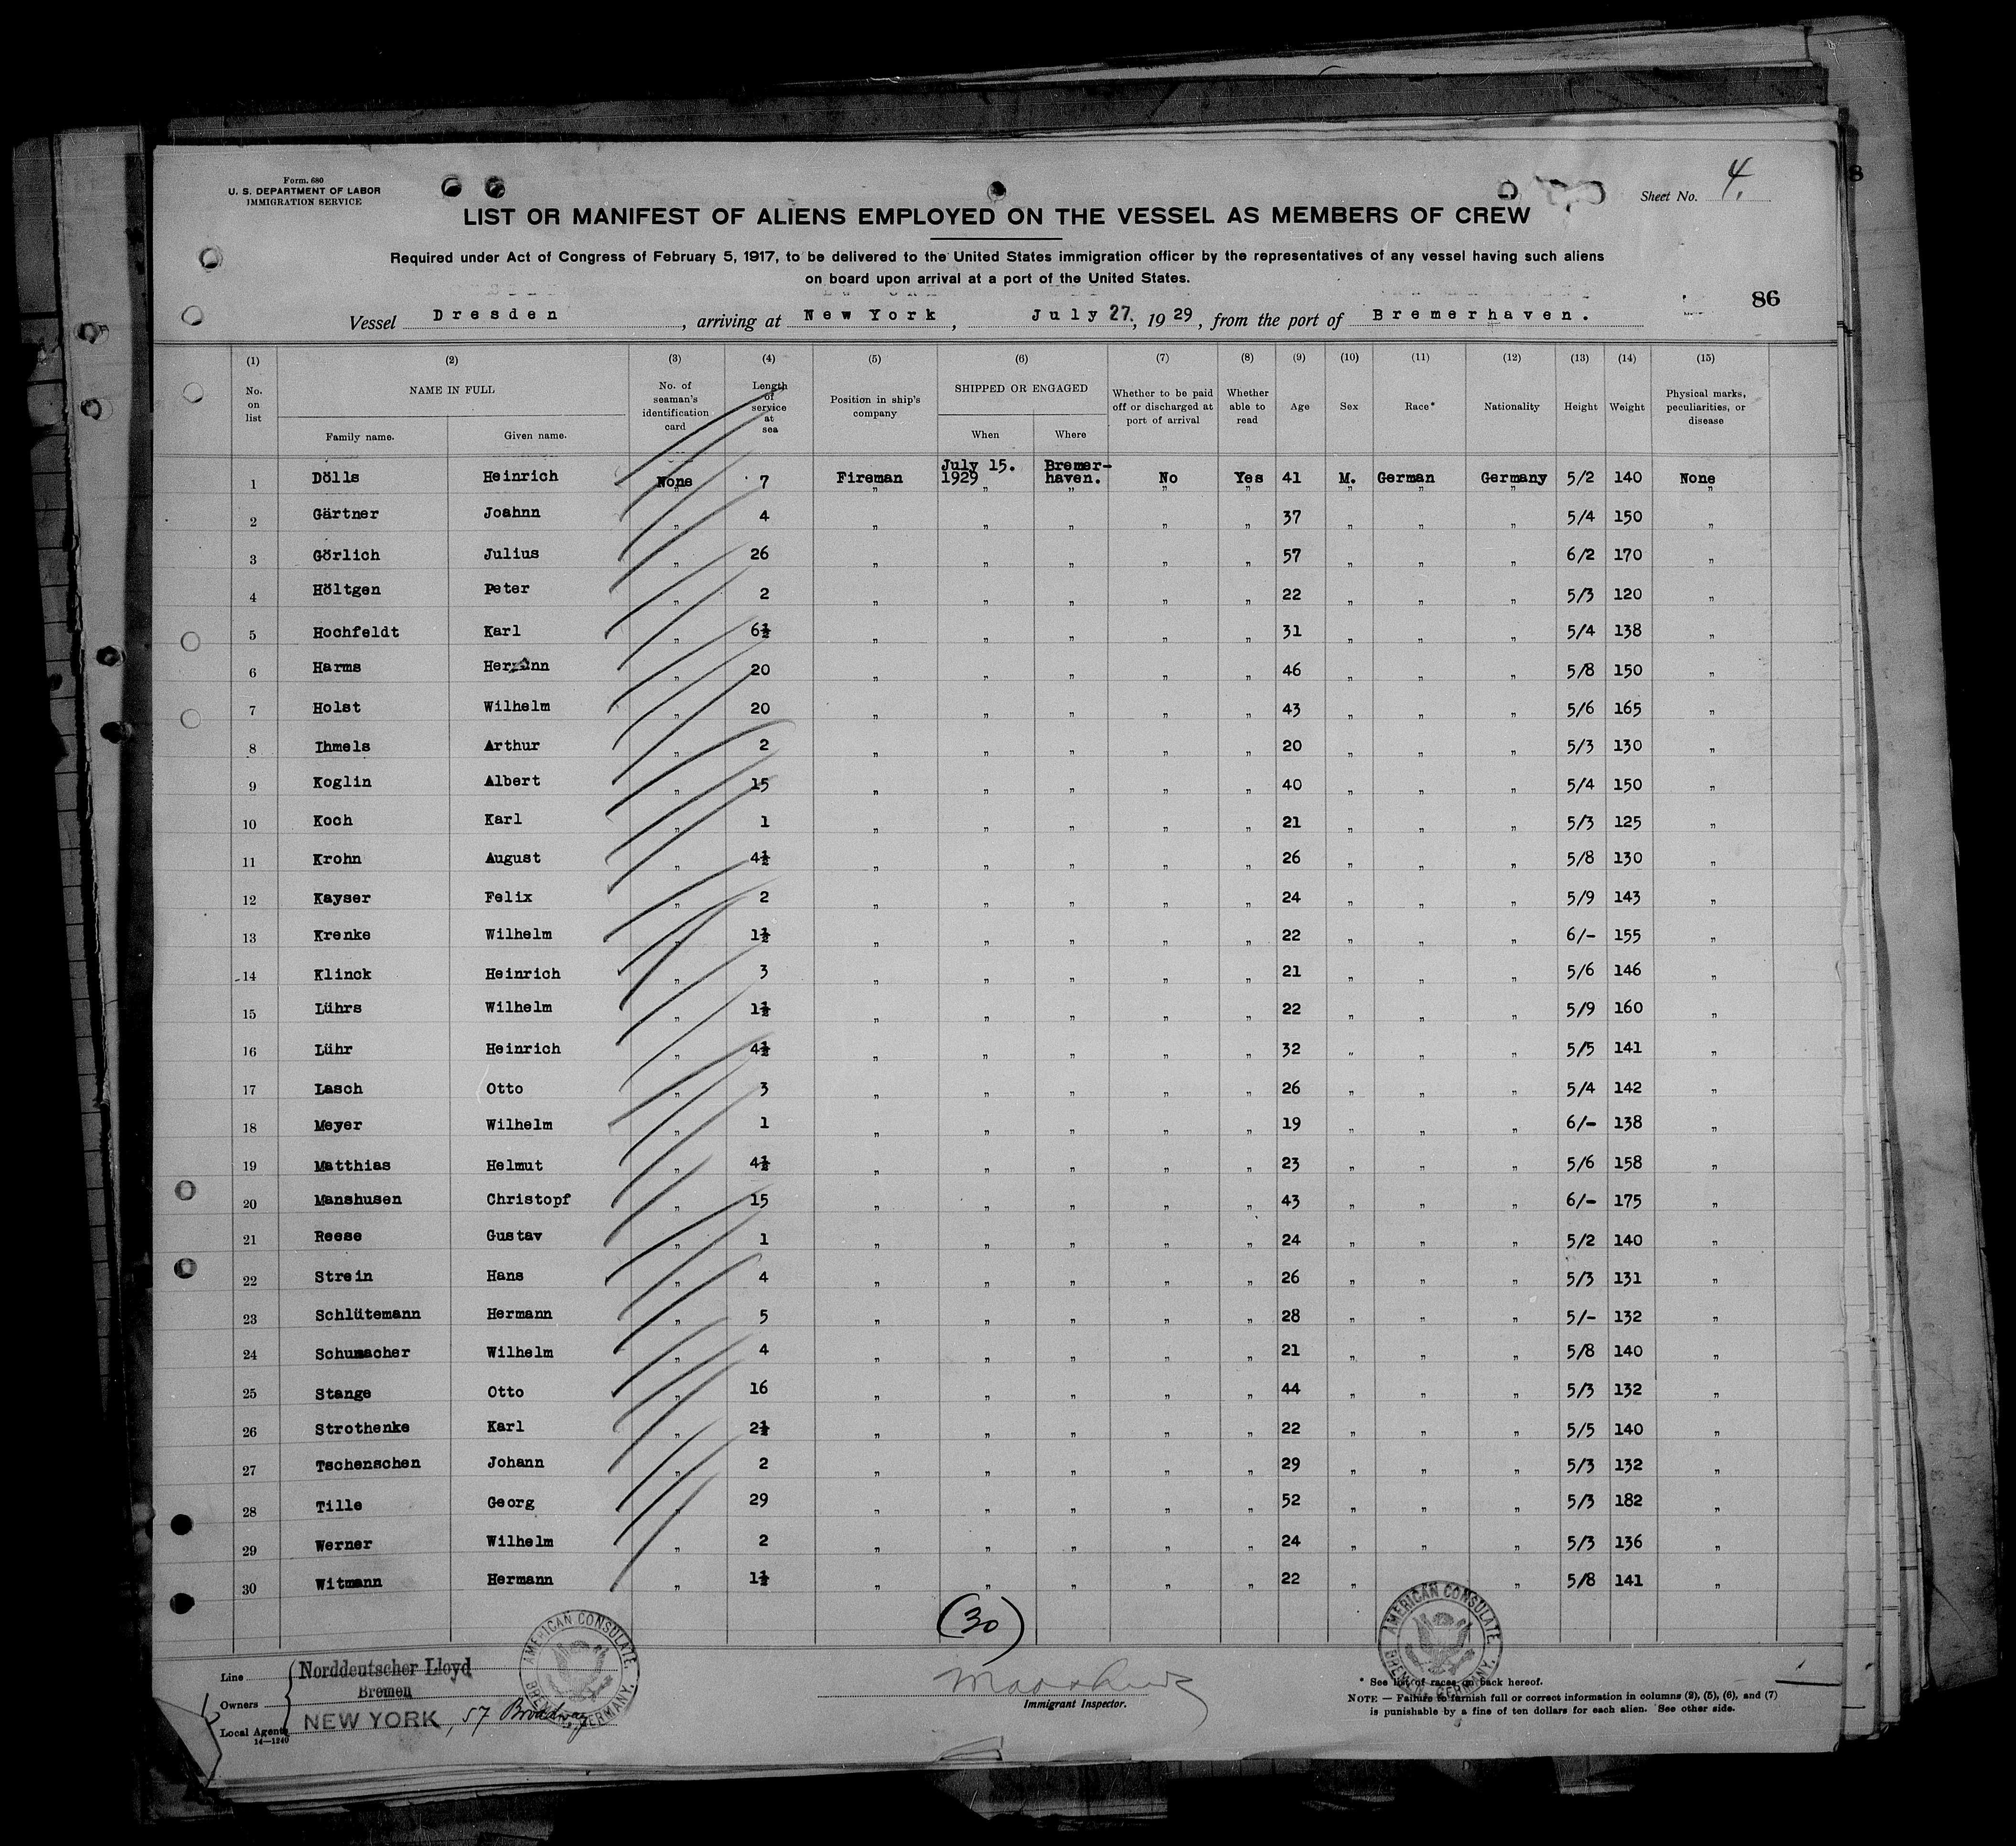 Form. 680
U. S. DEPARTMENT OF LABOR
IMMIGRATION SERVICE
Sheet No. 4.
LIST OR MANIFEST OF ALIENS EMPLOYED ON THE VESSEL AS MEMBERS OF CREW
Required under Act of Congress of February 5, 1917, to be delivered to the United States immigration officer by the representatives of any vessel having such aliens
on board upon arrival at a port of the United States.
86
Vessel Dresden, arriving at New York, July 27., 1929, from the port of Bremerhaven.
(1) (2) (3) (4) (5) (6) (7) (8) (9) (10) (11) (12) (13) (14) (15)
No. on list NAME IN FULL Family name. Given name. No. of seaman's identification card Length of service at sea Position in ship's company SHIPPED OR ENGAGED When Where Whether to be paid off or discharged at port of arrival Whether able to read Age Sex Race* Nationality Height Weight Physical marks, peculiarities, or disease
1 Dölls Heinrich None 7 Fireman July 15. 1929 Bremer-haven. No Yes 41 M. German Germany 5/2 140 None
2 Gärtner Joahnn " 4 " " " " " 37 " " " 5/4 150 "
3 Görlich Julius " 26 " " " " " 57 " " " 6/2 170 "
4 Höltgen Peter " 2 " " " " " 22 " " " 5/3 120 "
5 Hochfeldt Karl " 6½ " " " " " 31 " " " 5/4 138 "
6 Harms Hermann " 20 " " " " " 46 " " " 5/8 150 "
7 Holst Wilhelm " 20 " " " " " 43 " " " 5/6 165 "
8 Ihmels Arthur " 2 " " " " " 20 " " " 5/3 130 "
9 Koglin Albert " 15 " " " " " 40 " " " 5/4 150 "
10 Koch Karl " 1 " " " " " 21 " " " 5/3 125 "
11 Krohn August " 4½ " " " " " 26 " " " 5/8 130 "
12 Kayser Felix " 2 " " " " " 24 " " " 5/9 143 "
13 Krenke Wilhelm " 1½ " " " " " 22 " " " 6/- 155 "
14 Klinck Heinrich " 3 " " " " " 21 " " " 5/6 146 "
15 Lührs Wilhelm " 1½ " " " " " 22 " " " 5/9 160 "
16 Lühr Heinrich " 4½ " " " " " 32 " " " 5/5 141 "
17 Lasch Otto " 3 " " " " " 26 " " " 5/4 142 "
18 Meyer Wilhelm " 1 " " " " " 19 " " " 6/- 138 "
19 Matthias Helmut " 4½ " " " " " 23 " " " 5/6 158 "
20 Manshusen Christopf " 15 " " " " " 43 " " " 6/- 175 "
21 Reese Gustav " 1 " " " " " 24 " " " 5/2 140 "
22 Strein Hans " 4 " " " " " 26 " " " 5/3 131 "
23 Schlütemann Hermann " 5 " " " " " 28 " " " 5/- 132 "
24 Schumacher Wilhelm " 4 " " " " " 21 " " " 5/8 140 "
25 Stange Otto " 16 " " " " " 44 " " " 5/3 132 "
26 Strothenke Karl " 2½ " " " " " 22 " " " 5/5 140 "
27 Tschenschen Johann " 2 " " " " " 29 " " " 5/3 132 "
28 Tille Georg " 29 " " " " " 52 " " " 5/3 182 "
29 Werner Wilhelm " 2 " " " " " 24 " " " 5/3 136 "
30 Witmann Hermann " 1½ " " " " " 22 " " 5/8 141 "
(30)
AMERICAN CONSULATE. BREMEN, GERMANY.
AMERICAN CONSULATE. BREMEN, GERMANY.
Line Norddeutscher Lloyd
Owners Bremen
Local Agents NEW YORK, 57 Broadway
14—1240
Immigrant Inspector.
* See list of races on back hereof.
NOTE — Failure to furnish full or correct information in columns (2), (5), (6), and (7)
is punishable by a fine of ten dollars for each alien. See other side.